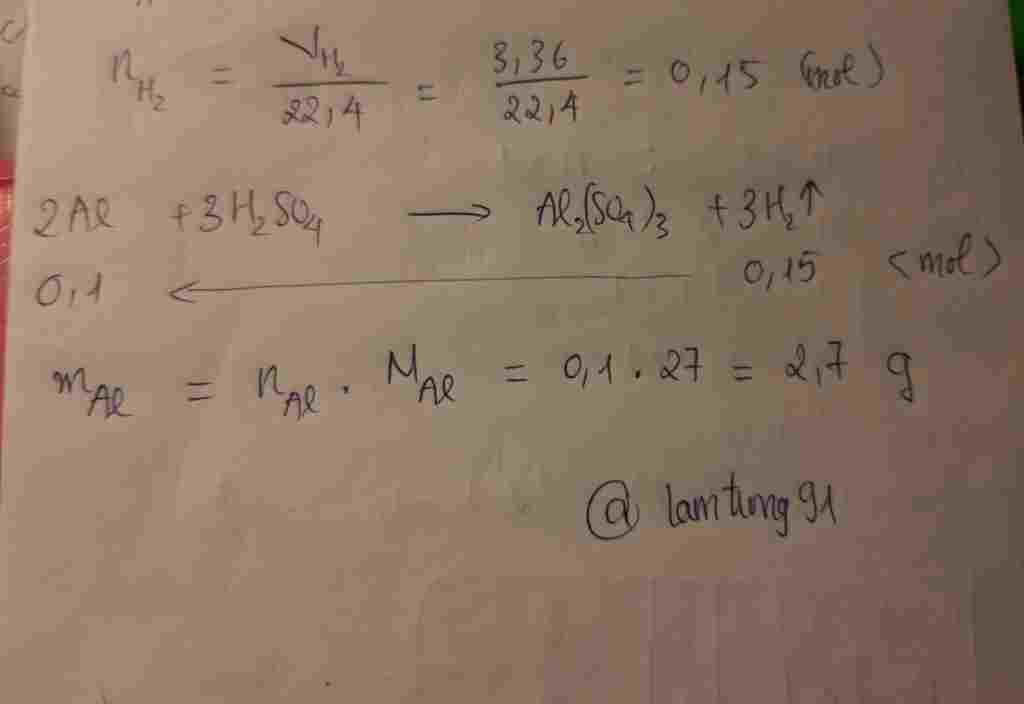 n_{H_2} = \frac{V_{H_2}}{22,4} = \frac{3,36}{22,4} = 0,15 (mol)
2Al + 3H_2SO_4 → Al_2(SO_4)_3 + 3H_2↑
0,1 ← 0,15 <mol>
m_{Al} = n_{Al} . M_{Al} = 0,1 . 27 = 2,7 g
@ lamtung91